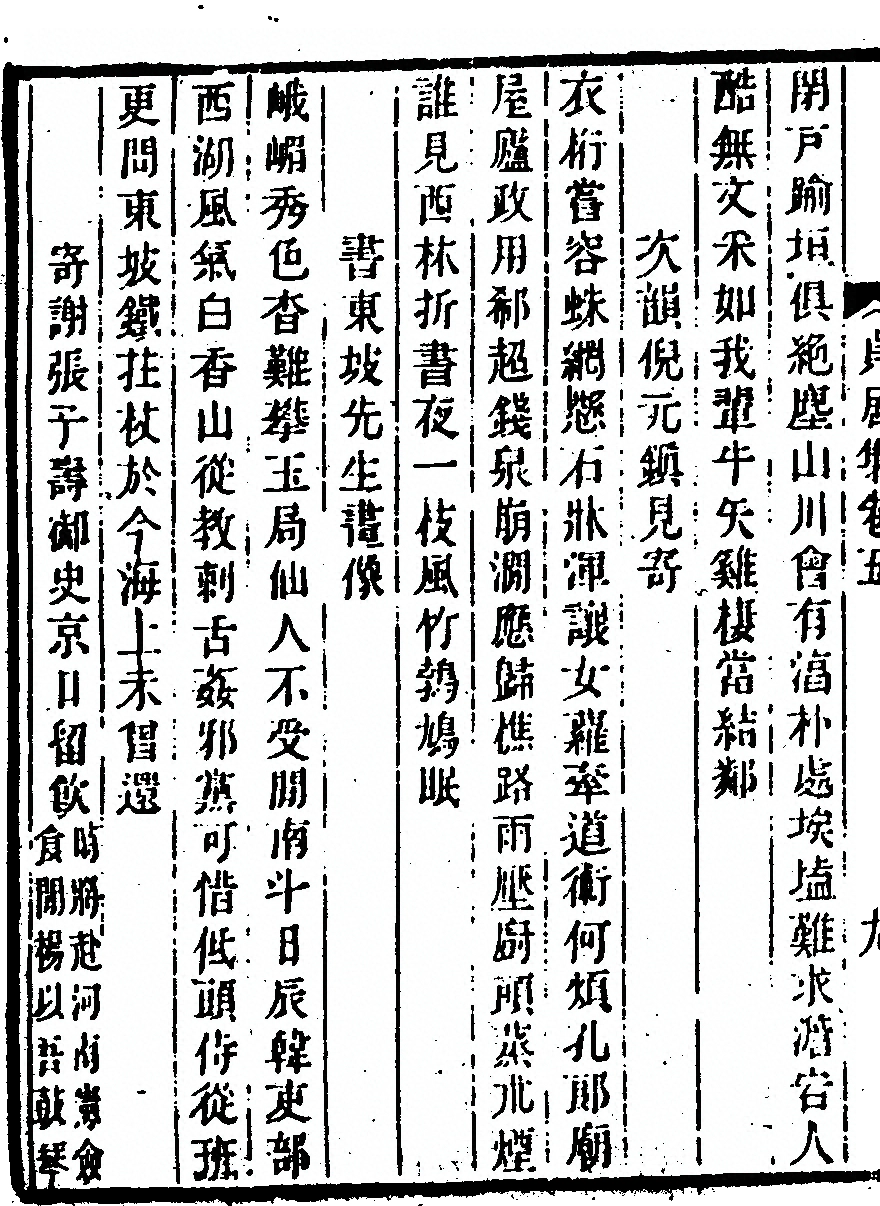 貞居集卷五　九
閉戶踰垣俱絕塵山川會有滀朴處埃壒難求潛宕人
酷無文采如我輩牛矢雞棲當結鄰
次韻倪元鎮見寄
衣桁嘗容蛛網懸石牀渾讓女羅牽道術何煩孔郎廟
屋廬政用郗超錢泉崩澗應歸樵路雨壓廚頭蒸朮煙
誰見西林折書夜一枝風竹鵓鳩眠
書東坡先生畫像
峨嵋秀色杳難攀玉局仙人不受閒南斗日辰韓吏部
西湖風氣白香山從教刺舌姦邪黨可惜低頭侍從班
更問東坡鐵拄杖於今海上未曾還
寄謝張子壽御史京口留飲
時將赴河南憲僉
食間楊以吾鼓琴